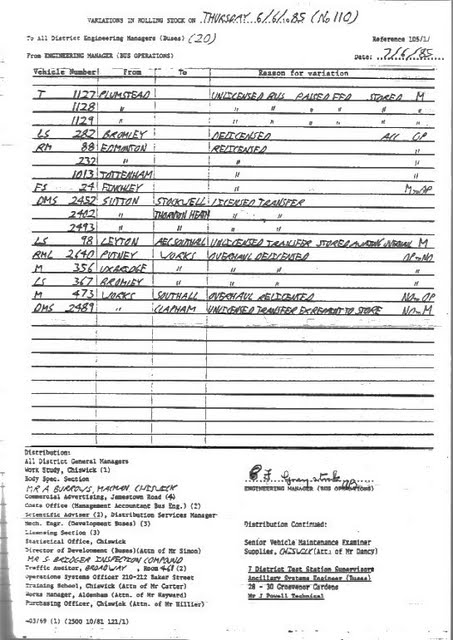 VARIATIONS IN ROLLING STOCK ON THURSDAY 6/6/1985 (No 110)
To All District Engineering Managers (Buses) (20) Reference 105/1/
From ENGINEERING MANAGER (BUS OPERATIONS) Date: 7/6/85
Vehicle Number From To Reason for variation
T 1127 PLUMSTEAD UNLICENSED BUS PASSED FFD STORED M
1128 " " " " " "
1129 " " " " " "
LS 282 BROMLEY DELICENSED OP
RM 88 EDMONTON RELICENSED "
232 " " "
1013 TOTTENHAM " "
FS 24 FINCHLEY " M to OP
DMS 2452 SUTTON STOCKWELL LICENSED TRANSFER
2402 " THORNTON HEATH " "
2493 " " " "
LS 98 LEYTON AEC SOUTHALL UNLICENSED TRANSFER STORED AWAITING OVERHAUL M
RML 2640 PUTNEY WORKS OVERHAUL DELICENSED OP to NO
M 356 UXBRIDGE " " " "
LS 367 BROMLEY " " " "
M 473 WORKS SOUTHALL OVERHAUL RELICENSED NO to OP
DMS 2489 " CLAPHAM UNLICENSED TRANSFER EXPERIMENT TO STORE NO to M
Distribution:
All District General Managers
Work Study, Chiswick (1)
Body Spec. Section
MR A BURROWS, MACMAN CHISWICK
ENGINEERING MANAGER (BUS OPERATIONS)
Commercial Advertising, Jamestown Road (4)
Costs Office (Management Accountant Bus Eng.) (2)
Scientific Adviser (2), Distribution Services Manager
Mech. Engr. (Development Buses) (3)
Distribution Continued:
Licensing Section (3)
Statistical Office, Chiswick
Senior Vehicle Maintenance Examiner
Director of Development (Buses)(Attn of Mr Simon)
Supplies, CHISWICK (Attn: of Mr Dancy)
MR S BRIDGER INSPECTION COMPOUND
Traffic Auditor, BROADWAY, Room 468 (2)
7 District Test Station Supervisors
Operations Systems Officer 210-212 Baker Street
Ancillary Systems Engineer (Buses)
Training School, Chiswick (Attn of Mr Carter)
28 - 30 Grosvenor Gardens
Works Manager, Aldenham (Attn of Mr Hayward)
Mr J Powell Technical
Purchasing Officer, Chiswick (Attn. of Mr Hillier)
-03/69 (1) (2500 10/81 121/1)